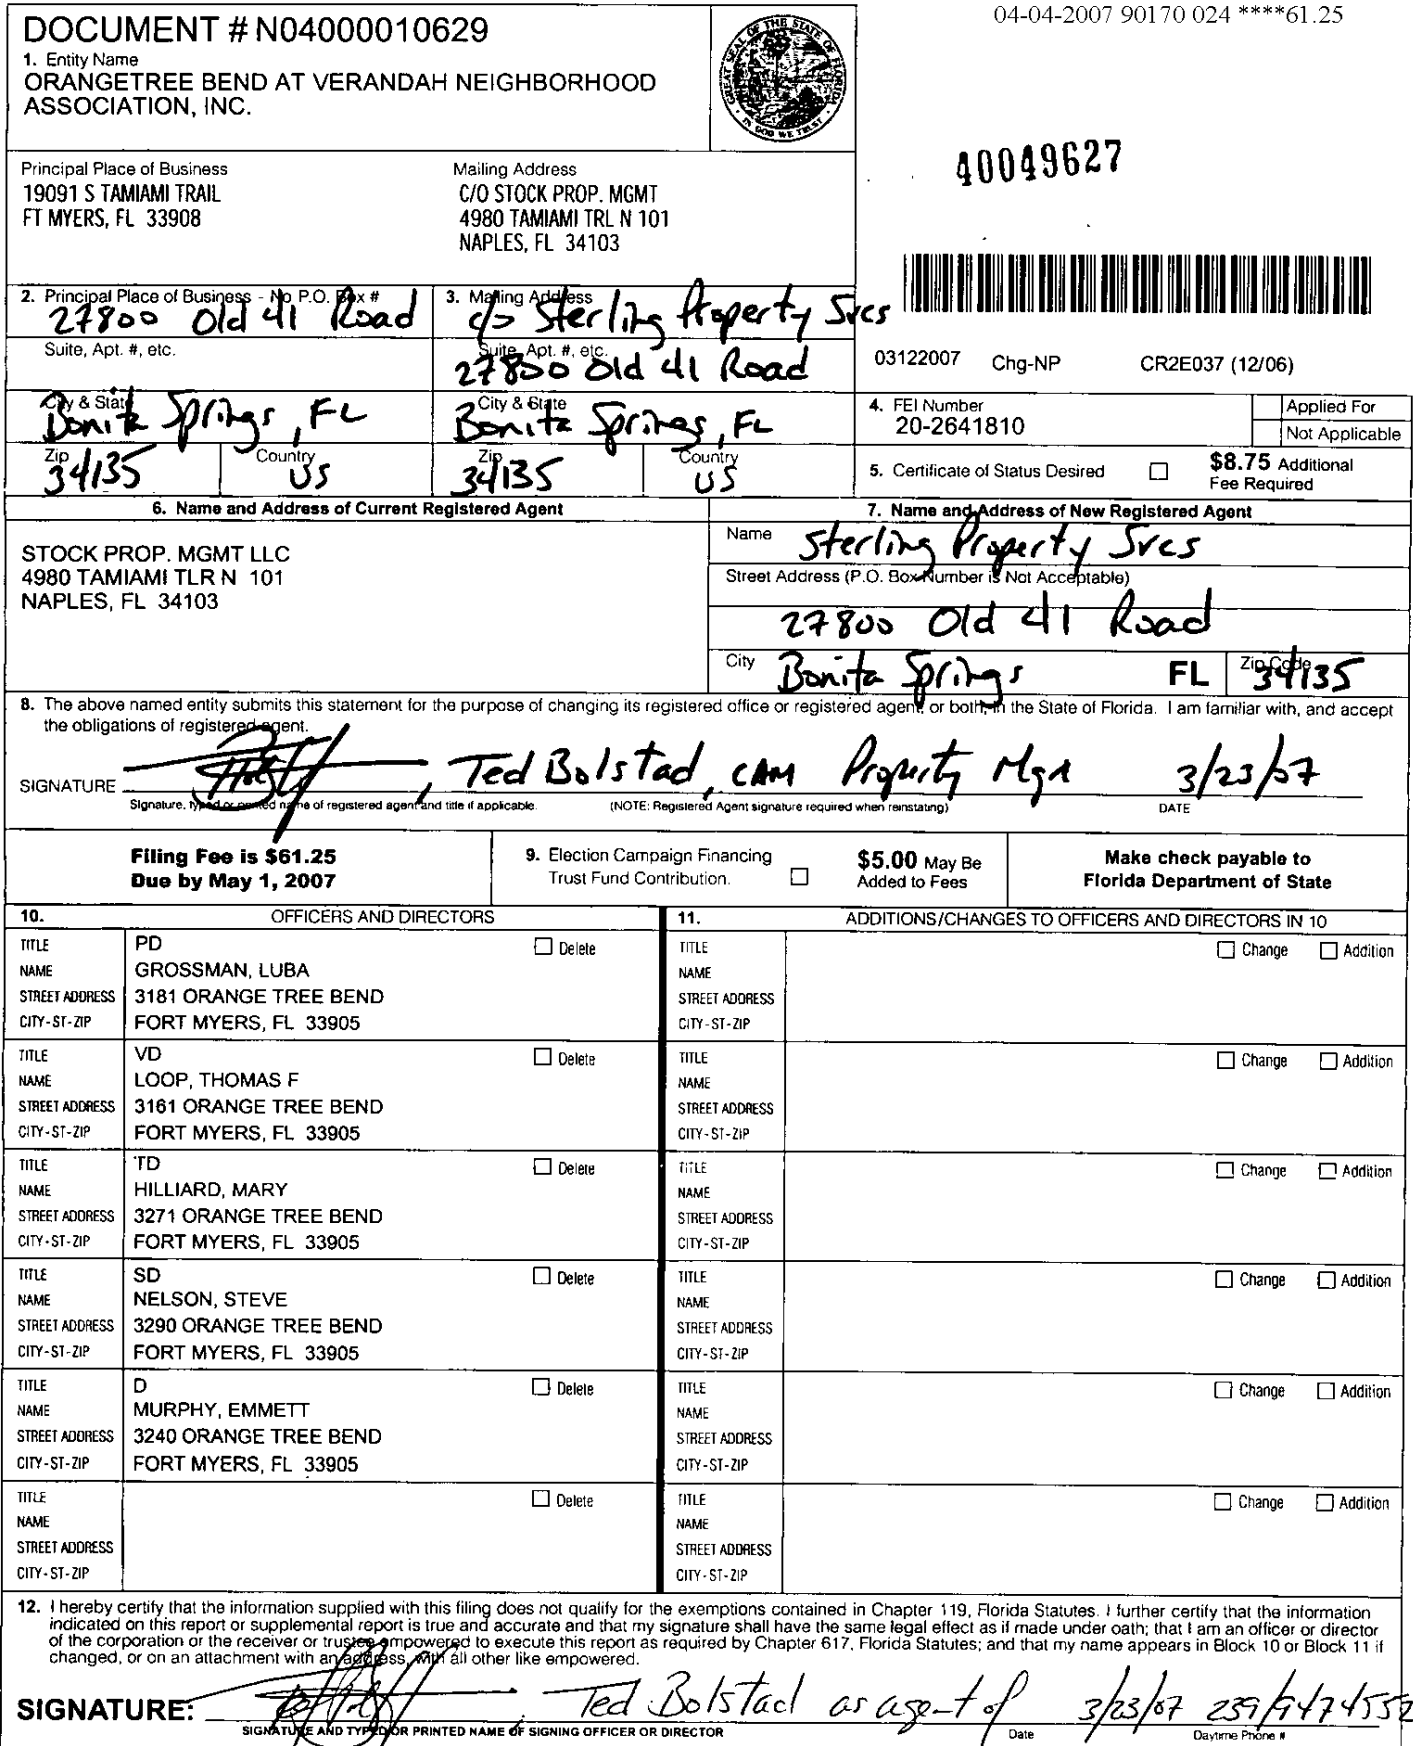 04-04-2007 90170 024 ****61.25
DOCUMENT # N04000010629
1. Entity Name
ORANGETREE BEND AT VERANDAH NEIGHBORHOOD
ASSOCIATION, INC.
GREAT SEAL OF THE STATE OF FLORIDA
IN GOD WE TRUST
40049627
Principal Place of Business
19091 S TAMIAMI TRAIL
FT MYERS, FL 33908
Mailing Address
C/O STOCK PROP. MGMT
4980 TAMIAMI TRL N 101
NAPLES, FL 34103
2. Principal Place of Business - No P.O. Box #
27800 Old 41 Road
3. Mailing Address
c/o Sterling Property Svcs
Suite, Apt. #, etc.
Suite, Apt. #, etc.
27800 Old 41 Road
03122007 Chg-NP CR2E037 (12/06)
City & State
Bonita Springs, FL
City & State
Bonita Springs, FL
4. FEI Number
20-2641810
Applied For
Not Applicable
Zip
34135
Country
US
Zip
34135
Country
US
5. Certificate of Status Desired
$8.75 Additional
Fee Required
6. Name and Address of Current Registered Agent
STOCK PROP. MGMT LLC
4980 TAMIAMI TLR N 101
NAPLES, FL 34103
7. Name and Address of New Registered Agent
Name Sterling Property Svcs
Street Address (P.O. Box Number is Not Acceptable)
27800 Old 41 Road
City Bonita Springs FL Zip Code 34135
8. The above named entity submits this statement for the purpose of changing its registered office or registered agent, or both, in the State of Florida. I am familiar with, and accept
the obligations of registered agent.
SIGNATURE , Ted Bolstad, CAM Property Mgr 3/23/07
Signature, typed or printed name of registered agent and title if applicable. (NOTE: Registered Agent signature required when reinstating) DATE
Filing Fee is $61.25
Due by May 1, 2007
9. Election Campaign Financing
Trust Fund Contribution.
$5.00 May Be
Added to Fees
Make check payable to
Florida Department of State
10. OFFICERS AND DIRECTORS
11. ADDITIONS/CHANGES TO OFFICERS AND DIRECTORS IN 10
TITLE PD Delete
NAME GROSSMAN, LUBA
STREET ADDRESS 3181 ORANGE TREE BEND
CITY-ST-ZIP FORT MYERS, FL 33905
TITLE Change Addition
NAME
STREET ADDRESS
CITY-ST-ZIP
TITLE VD Delete
NAME LOOP, THOMAS F
STREET ADDRESS 3161 ORANGE TREE BEND
CITY-ST-ZIP FORT MYERS, FL 33905
TITLE Change Addition
NAME
STREET ADDRESS
CITY-ST-ZIP
TITLE TD Delete
NAME HILLIARD, MARY
STREET ADDRESS 3271 ORANGE TREE BEND
CITY-ST-ZIP FORT MYERS, FL 33905
TITLE Change Addition
NAME
STREET ADDRESS
CITY-ST-ZIP
TITLE SD Delete
NAME NELSON, STEVE
STREET ADDRESS 3290 ORANGE TREE BEND
CITY-ST-ZIP FORT MYERS, FL 33905
TITLE Change Addition
NAME
STREET ADDRESS
CITY-ST-ZIP
TITLE D Delete
NAME MURPHY, EMMETT
STREET ADDRESS 3240 ORANGE TREE BEND
CITY-ST-ZIP FORT MYERS, FL 33905
TITLE Change Addition
NAME
STREET ADDRESS
CITY-ST-ZIP
TITLE Delete
NAME
STREET ADDRESS
CITY-ST-ZIP
TITLE Change Addition
NAME
STREET ADDRESS
CITY-ST-ZIP
12. I hereby certify that the information supplied with this filing does not qualify for the exemptions contained in Chapter 119, Florida Statutes. I further certify that the information
indicated on this report or supplemental report is true and accurate and that my signature shall have the same legal effect as if made under oath; that I am an officer or director
of the corporation or the receiver or trustee empowered to execute this report as required by Chapter 617, Florida Statutes; and that my name appears in Block 10 or Block 11 if
changed, or on an attachment with an address, with all other like empowered.
SIGNATURE: , Ted Bolstad as agent of 3/23/07 239/9474552
SIGNATURE AND TYPED OR PRINTED NAME OF SIGNING OFFICER OR DIRECTOR Date Daytime Phone #